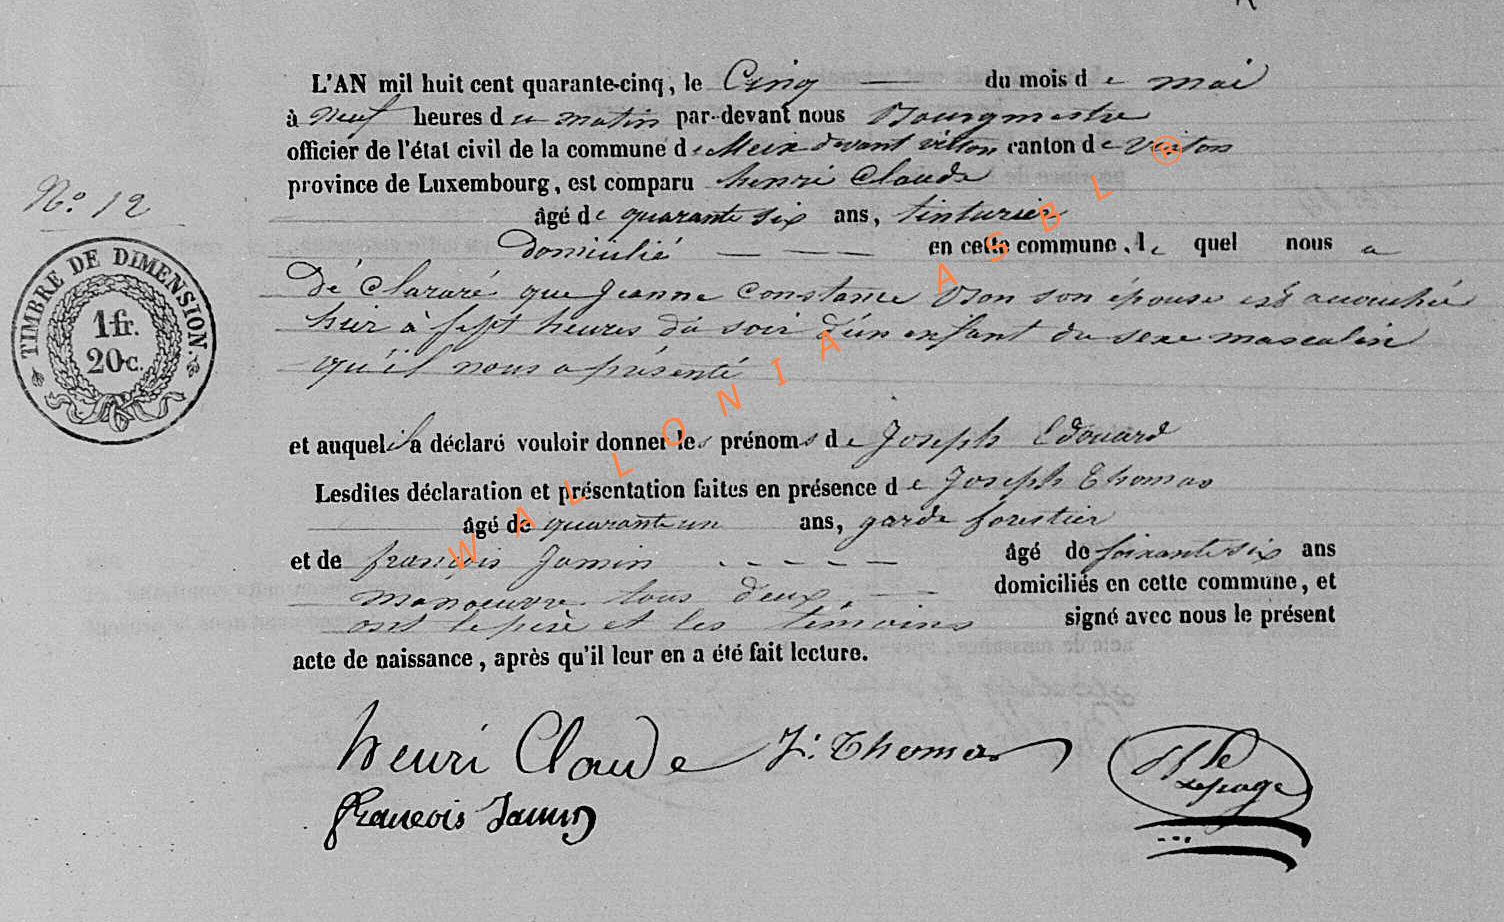 L'AN mil huit cent quarante-cinq, le Cinq du mois de mai
à Neuf heures du matin par-devant nous Bourgmestre
officier de l'état civil de la commune de Meix devant virton canton de Virton
province de Luxembourg, est comparu henri Claude
âgé de quarante six ans, tinturier
domicilié en cette commune, le quel nous a
Dé claré que Jeanne Constance son épouse est accouchée
hier à sept heures du soir d'un enfant du sexe masculin
qu'il nous a présenté
et auquel il a déclaré vouloir donner les prénoms de Joseph Edouard
Lesdites déclaration et présentation faites en présence de Joseph Thomas
âgé de quarante un ans, garde forestier
et de françois Jamin âgé de soixante six ans
manoeuvre tous deux domiciliés en cette commune, et
ont le père et les temoins signé avec nous le présent
acte de naissance, après qu'il leur en a été fait lecture.
N.o 12
TIMBRE DE DIMENSION.
1 fr.
20 c.
henri Claude J: Thomas
françois Jamin
Lepage
WALLONIA ASBL ®